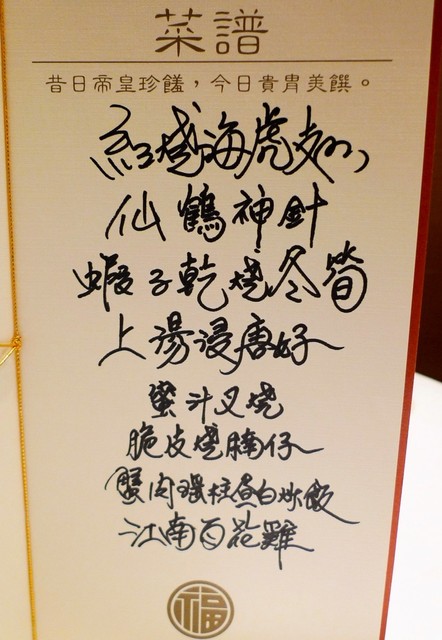 菜譜
昔日帝皇珍饈，今日貴胄美饌。
紅燒海虎翅
仙鶴神針
蝦子乾燒冬筍
上湯浸唐好
蜜汁叉燒
脆皮燒腩仔
蟹肉瑤柱蛋白炒飯
江南百花雞
福